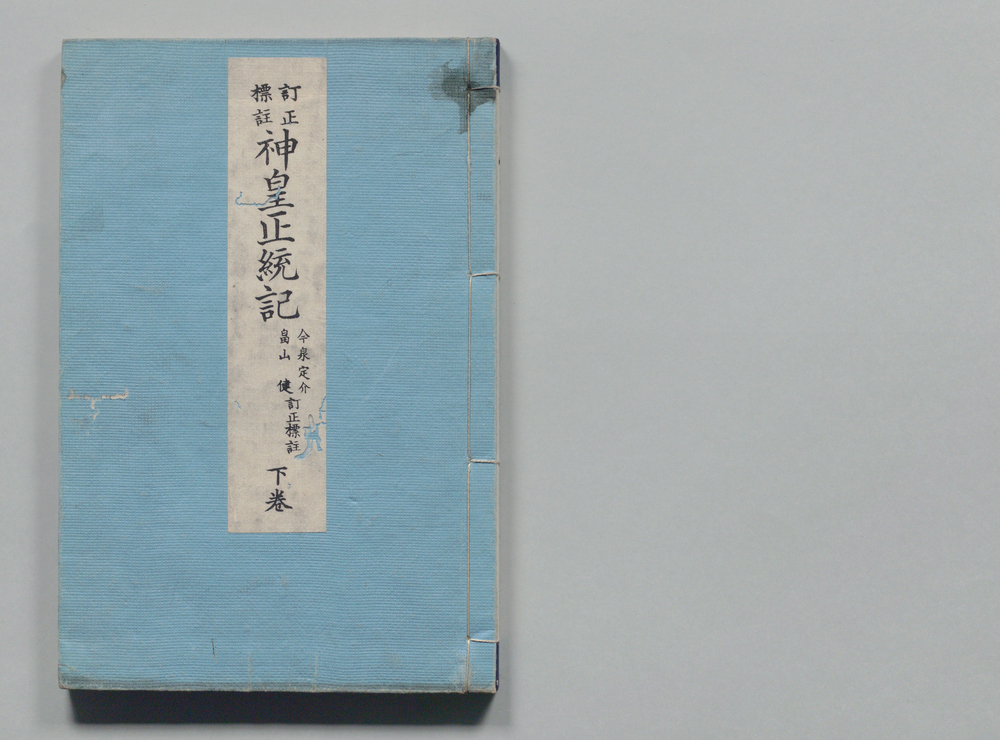 訂正
標註
神皇正統記
今泉定介
畠山健
訂正標註
下巻